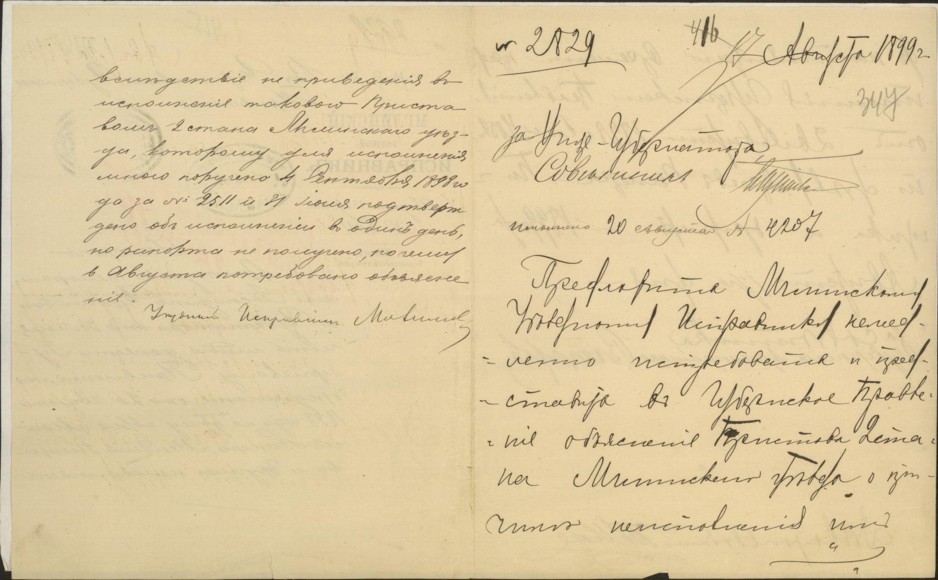 вслѣдствіе не приведенія въ
исполненіе таковаго Приста-
вомъ 2 стана Мглинскаго уѣз-
да, которому для исполненія
мною поручено 4 Сентября 1898 го
да за № 2511 и 31 Іюля подтверж
дено объ исполненіи въ одинъ день,
но рапорта не получено, почему
в Августа потребовано объясне-
ніе.
Уѣздный Исправникъ
№ 2829
416
17 Августа 1899 г
347
за Вице-Губернатора
Совѣтникъ
исполнено 20 сего августа № 4207
Предложить Мглинскому
Уѣздному Исправнику немед-
-ленно истребовать и пред-
-ставить въ Губернское Правле-
-ніе объясненіе Пристава 2 ста-
на Мглинскаго уѣзда о при-
чинахъ неисполненія имъ